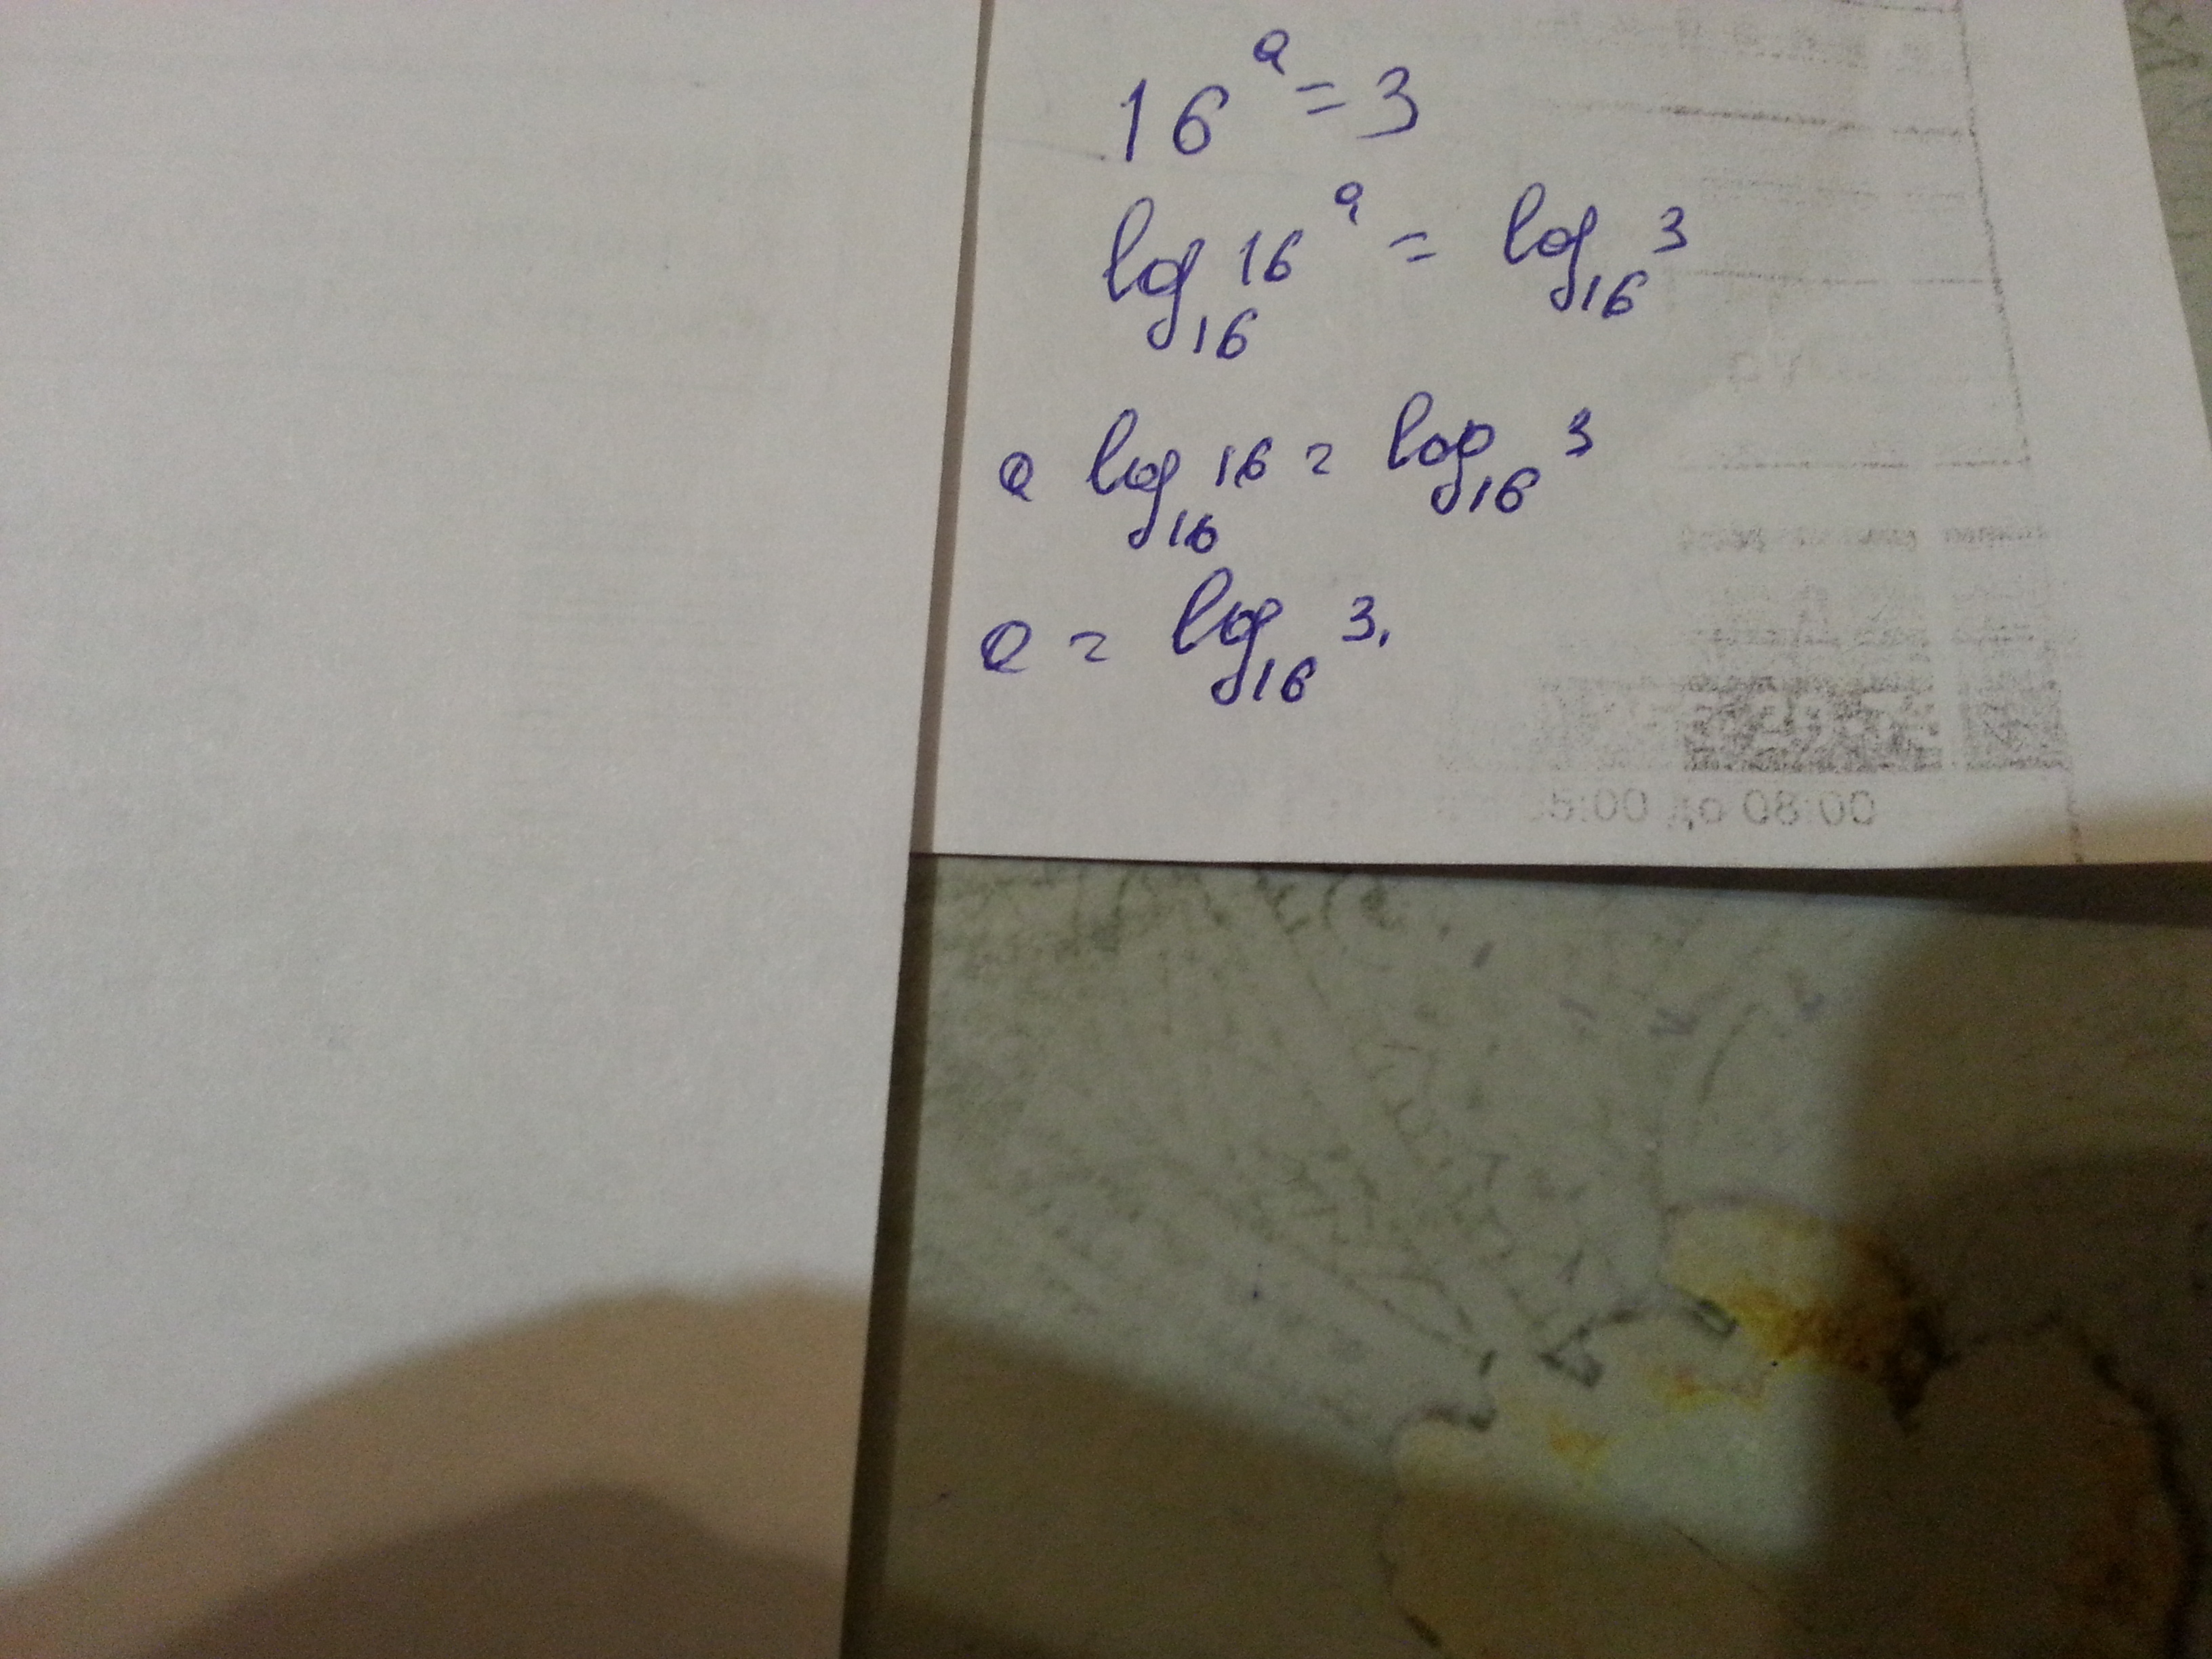 16^a = 3
log_16 16^a = log_16 3
a log_16 16 = log_16 3
a = log_16 3.
5:00 до 08:00